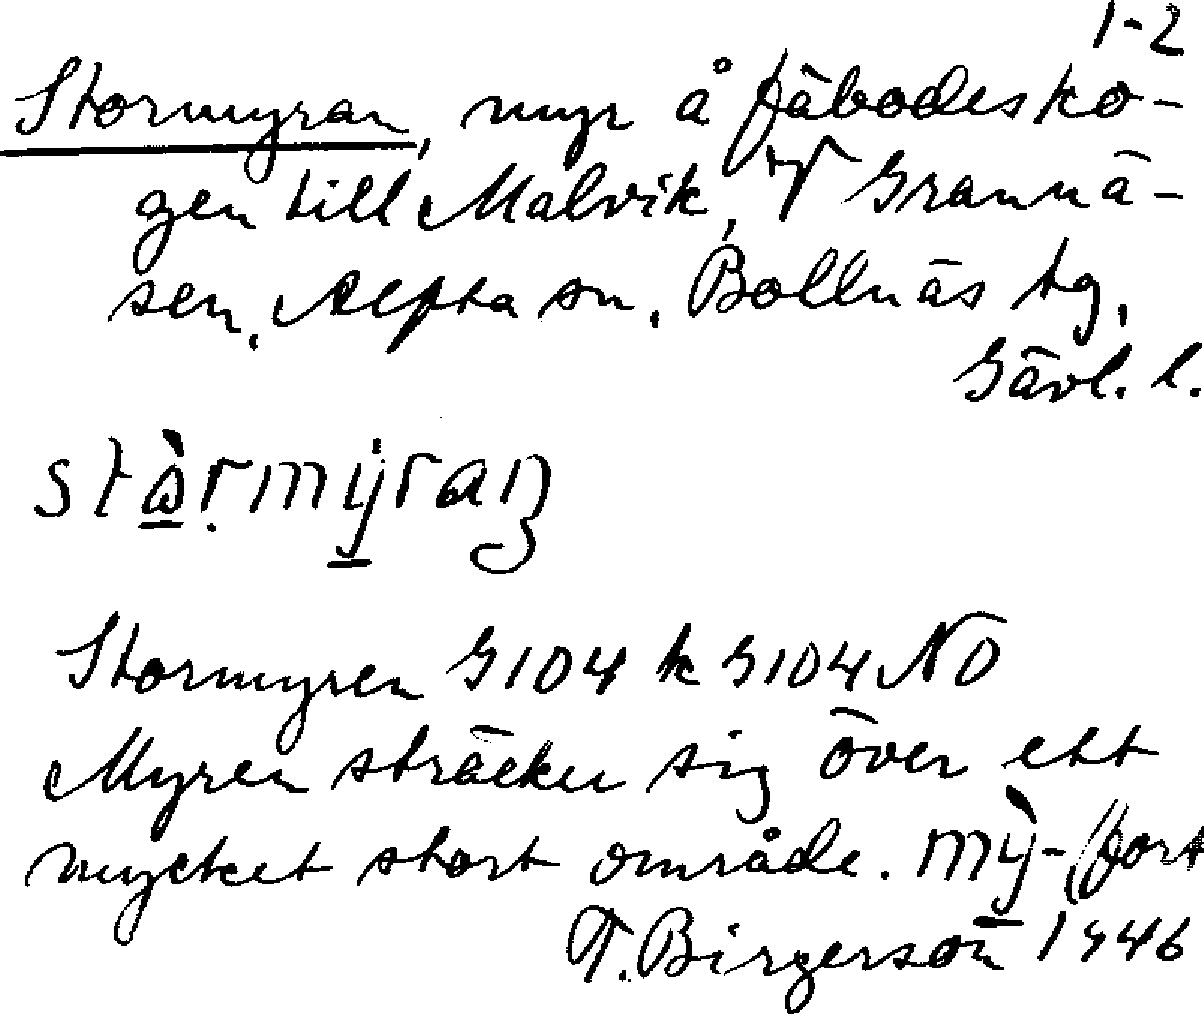 1-2
Stormyran, myr å fäbodesko-
gen till Malvik, V Grannä-
sen, Alfta sn, Bollnäs tg,
Gävl. l.
Stormyren G104 k G104 NO
Myren sträcker sig över ett
mycket stort område. mỳ- (fort
T. Birgerson 1946